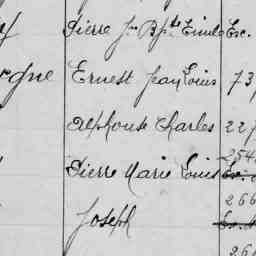 Pierre Jn Bpte Emile Esc.
Ernest Jean Louis 73
Alphonse Charles 227
254
Pierre Marie Louis
266
Joseph